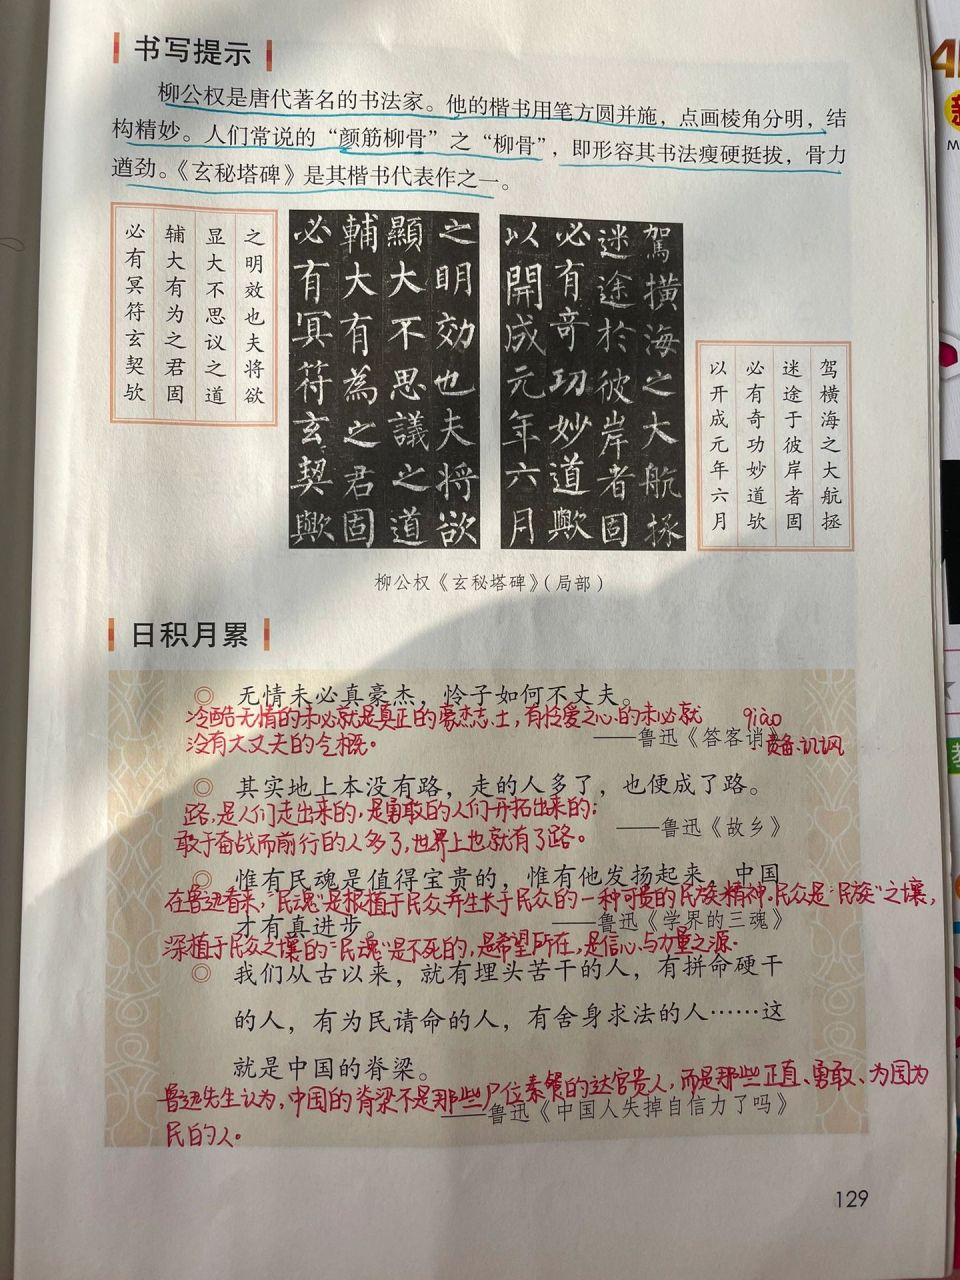 书写提示
柳公权是唐代著名的书法家。他的楷书用笔方圆并施，点画棱角分明，结
构精妙。人们常说的“颜筋柳骨”之“柳骨”，即形容其书法瘦硬挺拔，骨力
遒劲。《玄秘塔碑》是其楷书代表作之一。
之明效也夫将欲
显大不思议之道
辅大有为之君固
必有冥符玄契欤
之明効也夫将欲
顯大不思議之道
輔大有為之君固
必有冥符玄契歟
駕横海之大航拯
迷途於彼岸者固
必有奇功妙道歟
以開成元年六月
驾横海之大航拯
迷途于彼岸者固
必有奇功妙道欤
以开成元年六月
柳公权《玄秘塔碑》（局部）
日积月累
◎ 无情未必真豪杰，怜子如何不丈夫。
冷酷无情的未必就是真正的豪杰志士，有怜爱之心的未必就
qiào
没有大丈夫的气概。
——鲁迅《答客诮》
责备、讥讽
◎ 其实地上本没有路，走的人多了，也便成了路。
路，是人们走出来的，是勇敢的人们开拓出来的；
——鲁迅《故乡》
敢于奋战而前行的人多了，世界上也就有了路。
◎ 惟有民魂是值得宝贵的，惟有他发扬起来，中国
在鲁迅看来，“民魂”是根植于民众并生长于民众的一种可贵的民族精神。民众是“民族”之壤，
才有真进步。 ——鲁迅《学界的三魂》
深植于民众之壤的“民魂”是不死的，是希望所在，是信心与力量之源。
◎ 我们从古以来，就有埋头苦干的人，有拼命硬干
的人，有为民请命的人，有舍身求法的人……这
就是中国的脊梁。
鲁迅先生认为，中国的脊梁不是那些尸位素餐的达官贵人，而是那些正直、勇敢、为国为
——鲁迅《中国人失掉自信力了吗》
民的人。
129